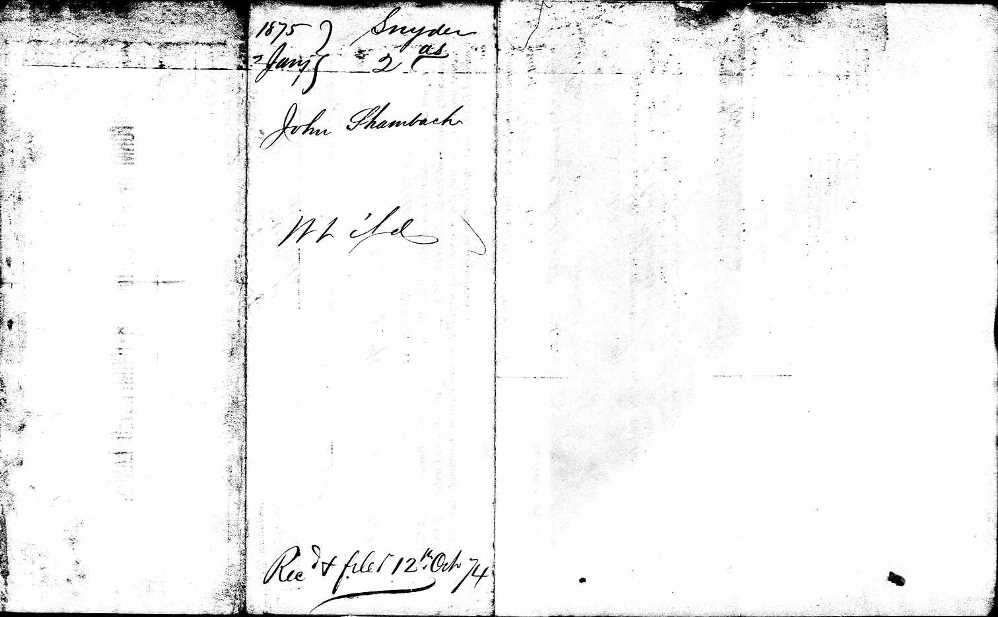 1875 } Snyder
2 Jany } 2 as
John Shambach
Rec'd & filed 12th Oct 74